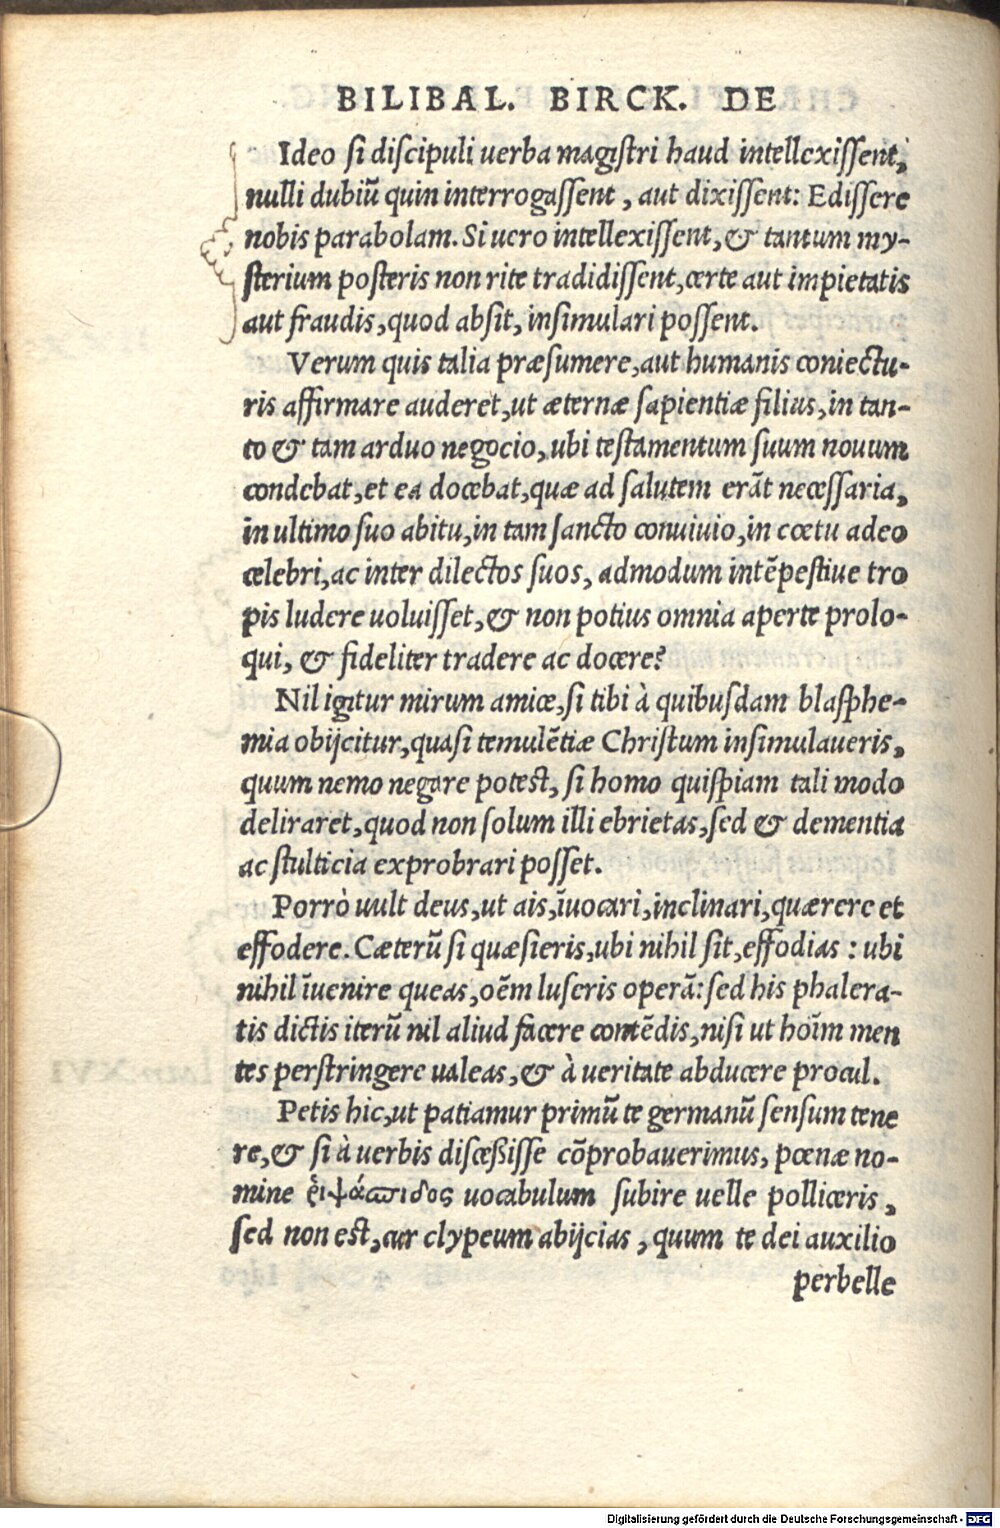 BILIBAL. BIRCK. DE
Ideo si discipuli uerba magistri haud intellexissent,
nulli dubiũ quin interrogassent, aut dixissent: Edissere
nobis parabolam. Si uero intellexissent, & tantum my-
sterium posteris non rite tradidissent, certe aut impietatis
aut fraudis, quod absit, insimulari possent.
Verum quis talia præsumere, aut humanis coniectu-
ris affirmare auderet, ut æternæ sapientiæ filius, in tan-
to & tam arduo negocio, ubi testamentum suum nouum
condebat, et ea docebat, quæ ad salutem erãt necessaria,
in ultimo suo abitu, in tam sancto conuiuio, in cœtu adeo
celebri, ac inter dilectos suos, admodum intẽpestiue tro
pis ludere uoluisset, & non potius omnia aperte prolo-
qui, & fideliter tradere ac docere?
Nil igitur mirum amice, si tibi à quibusdam blasphe-
mia obijcitur, quasi temulẽtiæ Christum insimulaueris,
quum nemo negare potest, si homo quispiam tali modo
deliraret, quod non solum illi ebrietas, sed & dementia
ac stulticia exprobrari posset.
Porrò uult deus, ut ais, ĩuocari, inclinari, quærere et
effodere. Cæterũ si quæsieris, ubi nihil sit, effodias: ubi
nihil ĩuenire queas, oẽm luseris operã: sed his phalera-
tis dictis iterũ nil aliud facere contẽdis, nisi ut hoĩm men
tes perstringere ualeas, & à ueritate abducere procul.
Petis hic, ut patiamur primũ te germanũ sensum tene
re, & si à uerbis discessisse cõprobauerimus, pœnæ no-
mine ῥιψάσπιδος uocabulum subire uelle polliceris,
sed non est, cur clypeum abijcias, quum te dei auxilio
perbelle
Digitalisierung gefördert durch die Deutsche Forschungsgemeinschaft - DFG